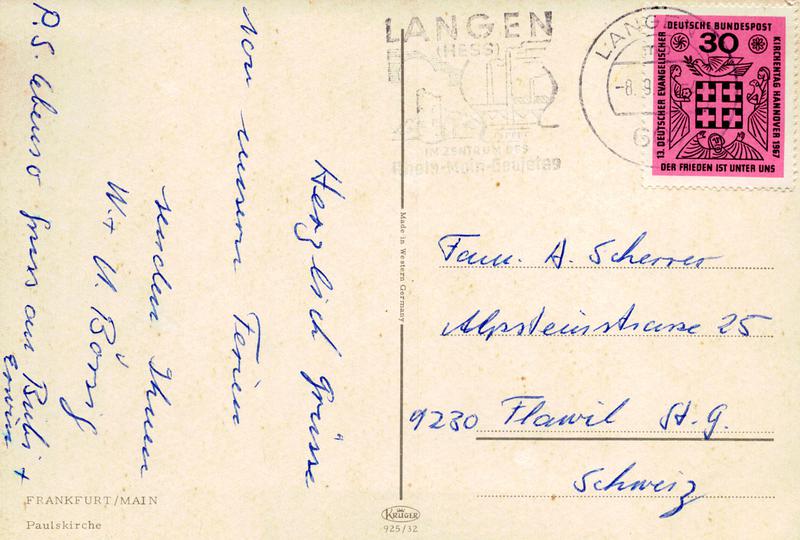 Herzlich Grüsse
von unsern Ferien
senden Ihnen
W. + U. Börsig
P.S. Ebenso Gruss an Bubi +
Erwin
FRANKFURT/MAIN
Paulskirche
Made in Western Germany
KRÜGER
925/32
LANGEN
(HESS)
IM ZENTRUM DES
Rhein-Main-Gebietes
LANGEN
-8.9.
DEUTSCHE BUNDESPOST
30
13. DEUTSCHER EVANGELISCHER
KIRCHENTAG HANNOVER 1967
DER FRIEDEN IST UNTER UNS
Fam. A. Scherrer
Alpsteinstrasse 25
9230 Flawil St. G.
Schweiz